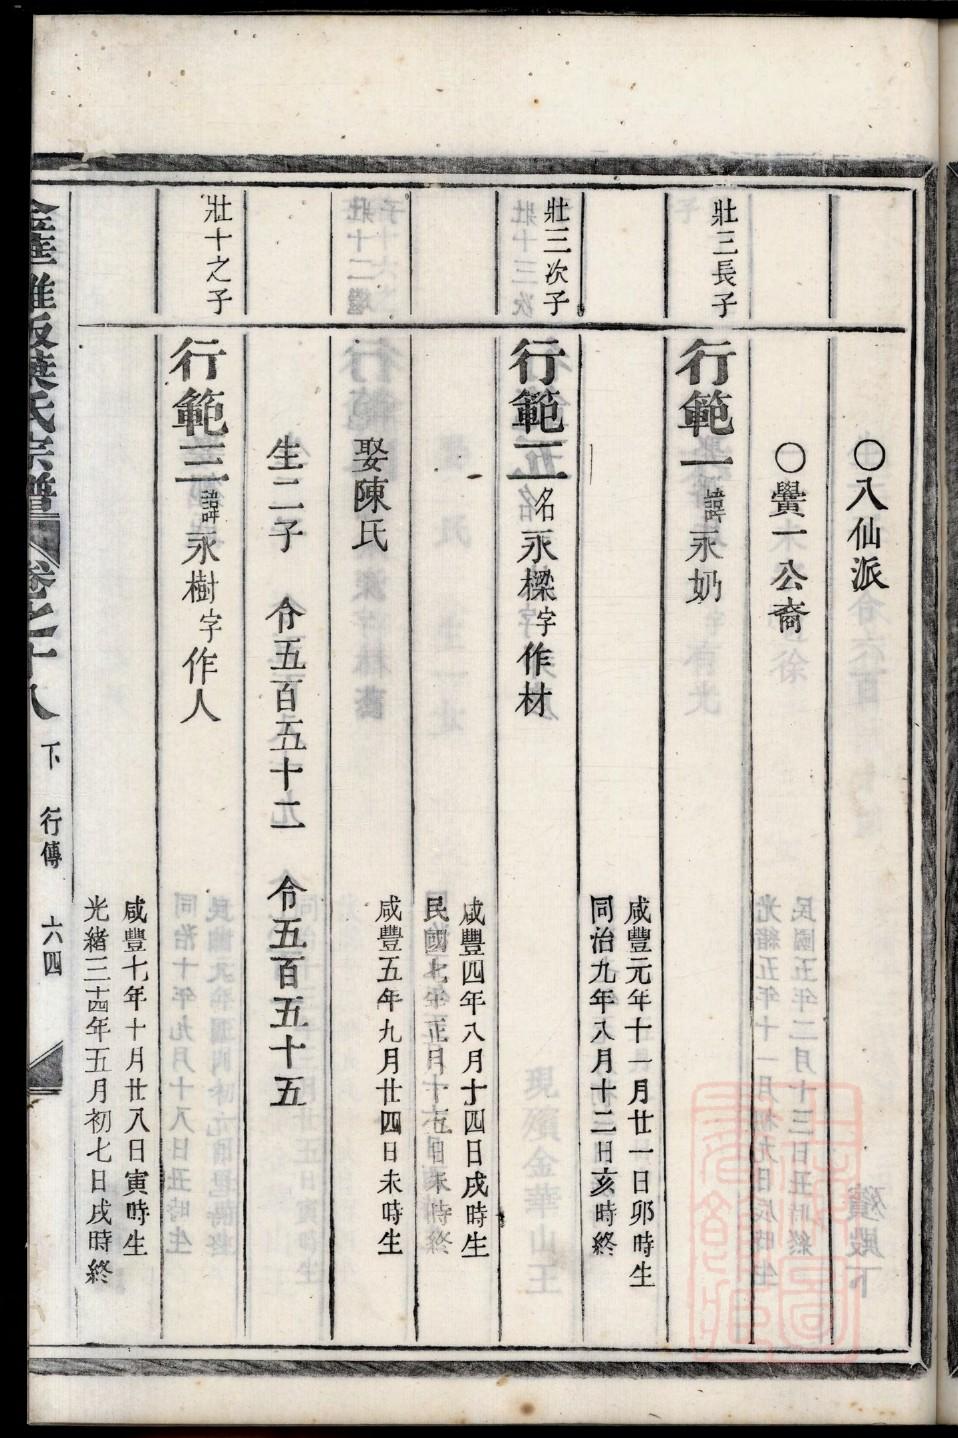 〇八仙派
〇黌一公裔
壯三長子
行範一諱永奶
咸豐元年十一月廿一日卯時生
同治九年八月十二日亥時終
壯三次子
行範二名永樑字作材
咸豐四年八月十四日戌時生
娶陳氏
咸豐五年九月廿四日未時生
生二子 令五百五十二 令五百五十五
壯十之子
行範三諱永樹字作人
咸豐七年十月廿八日寅時生
光緒三十四年五月初七日戌時終
葉氏宗譜 卷之十八 下 行傳 六四